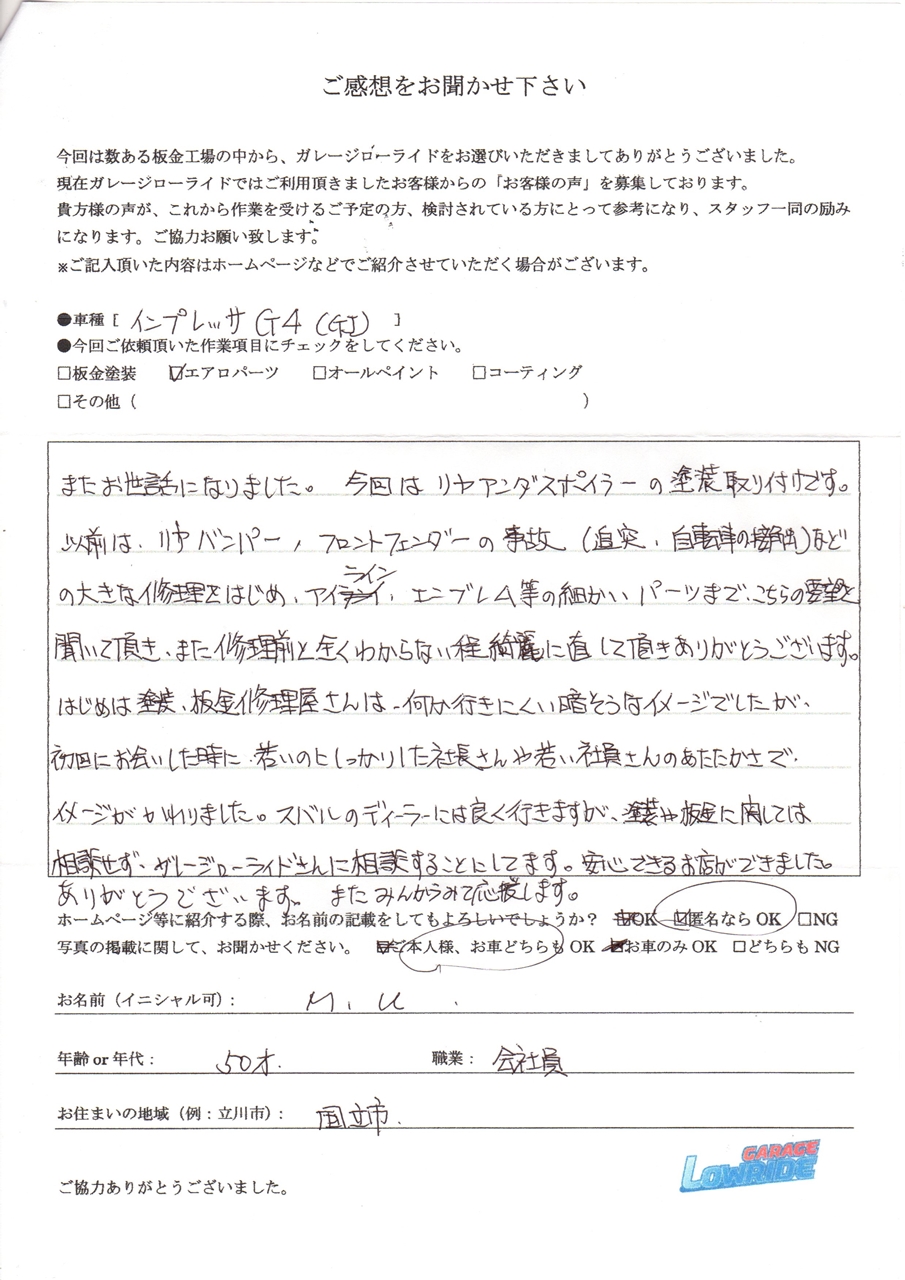 ご感想をお聞かせ下さい
今回は数ある板金工場の中から、ガレージローライドをお選びいただきましてありがとうございました。
現在ガレージローライドではご利用頂きましたお客様からの「お客様の声」を募集しております。
貴方様の声が、これから作業を受けるご予定の方、検討されている方にとって参考になり、スタッフ一同の励み
になります。ご協力お願い致します。
※ご記入頂いた内容はホームページなどでご紹介させていただく場合がございます。
●車種 [ インプレッサ G4 (GJ) ]
●今回ご依頼頂いた作業項目にチェックをしてください。
□板金塗装 ☑エアロパーツ □オールペイント □コーティング
□その他 ( )
またお世話になりました。 今回は リヤアンダスポイラーの塗装取り付けです。
以前は、リヤバンパー、フロントフェンダーの事故 (追突、自転車の接触)など
の大きな修理をはじめ、アイライン、エンブレム等の細かいパーツまで、こちらの要望を
聞いて頂き、また修理前と全くわからない程綺麗に直して頂きありがとうございます。
はじめは塗装、板金修理屋さんは、何か行きにくい暗そうなイメージでしたが、
初回にお会いした時に、若いのにしっかりした社長さんや若い社員さんのあたたかさで、
イメージがかわりました。スバルのディーラーには良く行きますが、塗装や板金に関しては
相談せず、ガレージローライドさんに相談することにしてます。安心できるお店ができました。
ありがとうございます。 またみんカラみて応援します。
ホームページ等に紹介する際、お名前の記載をしてもよろしいでしょうか? ☑OK ☑匿名なら OK □NG
写真の掲載に関して、お聞かせください。 ☑ご本人様、お車どちらも OK ☑お車のみ OK □どちらも NG
お名前(イニシャル可): M. U .
年齢 or 年代: 50才. 職業: 会社員
お住まいの地域(例:立川市): 国立市.
ご協力ありがとうございました。
GARAGE
LOWRIDE